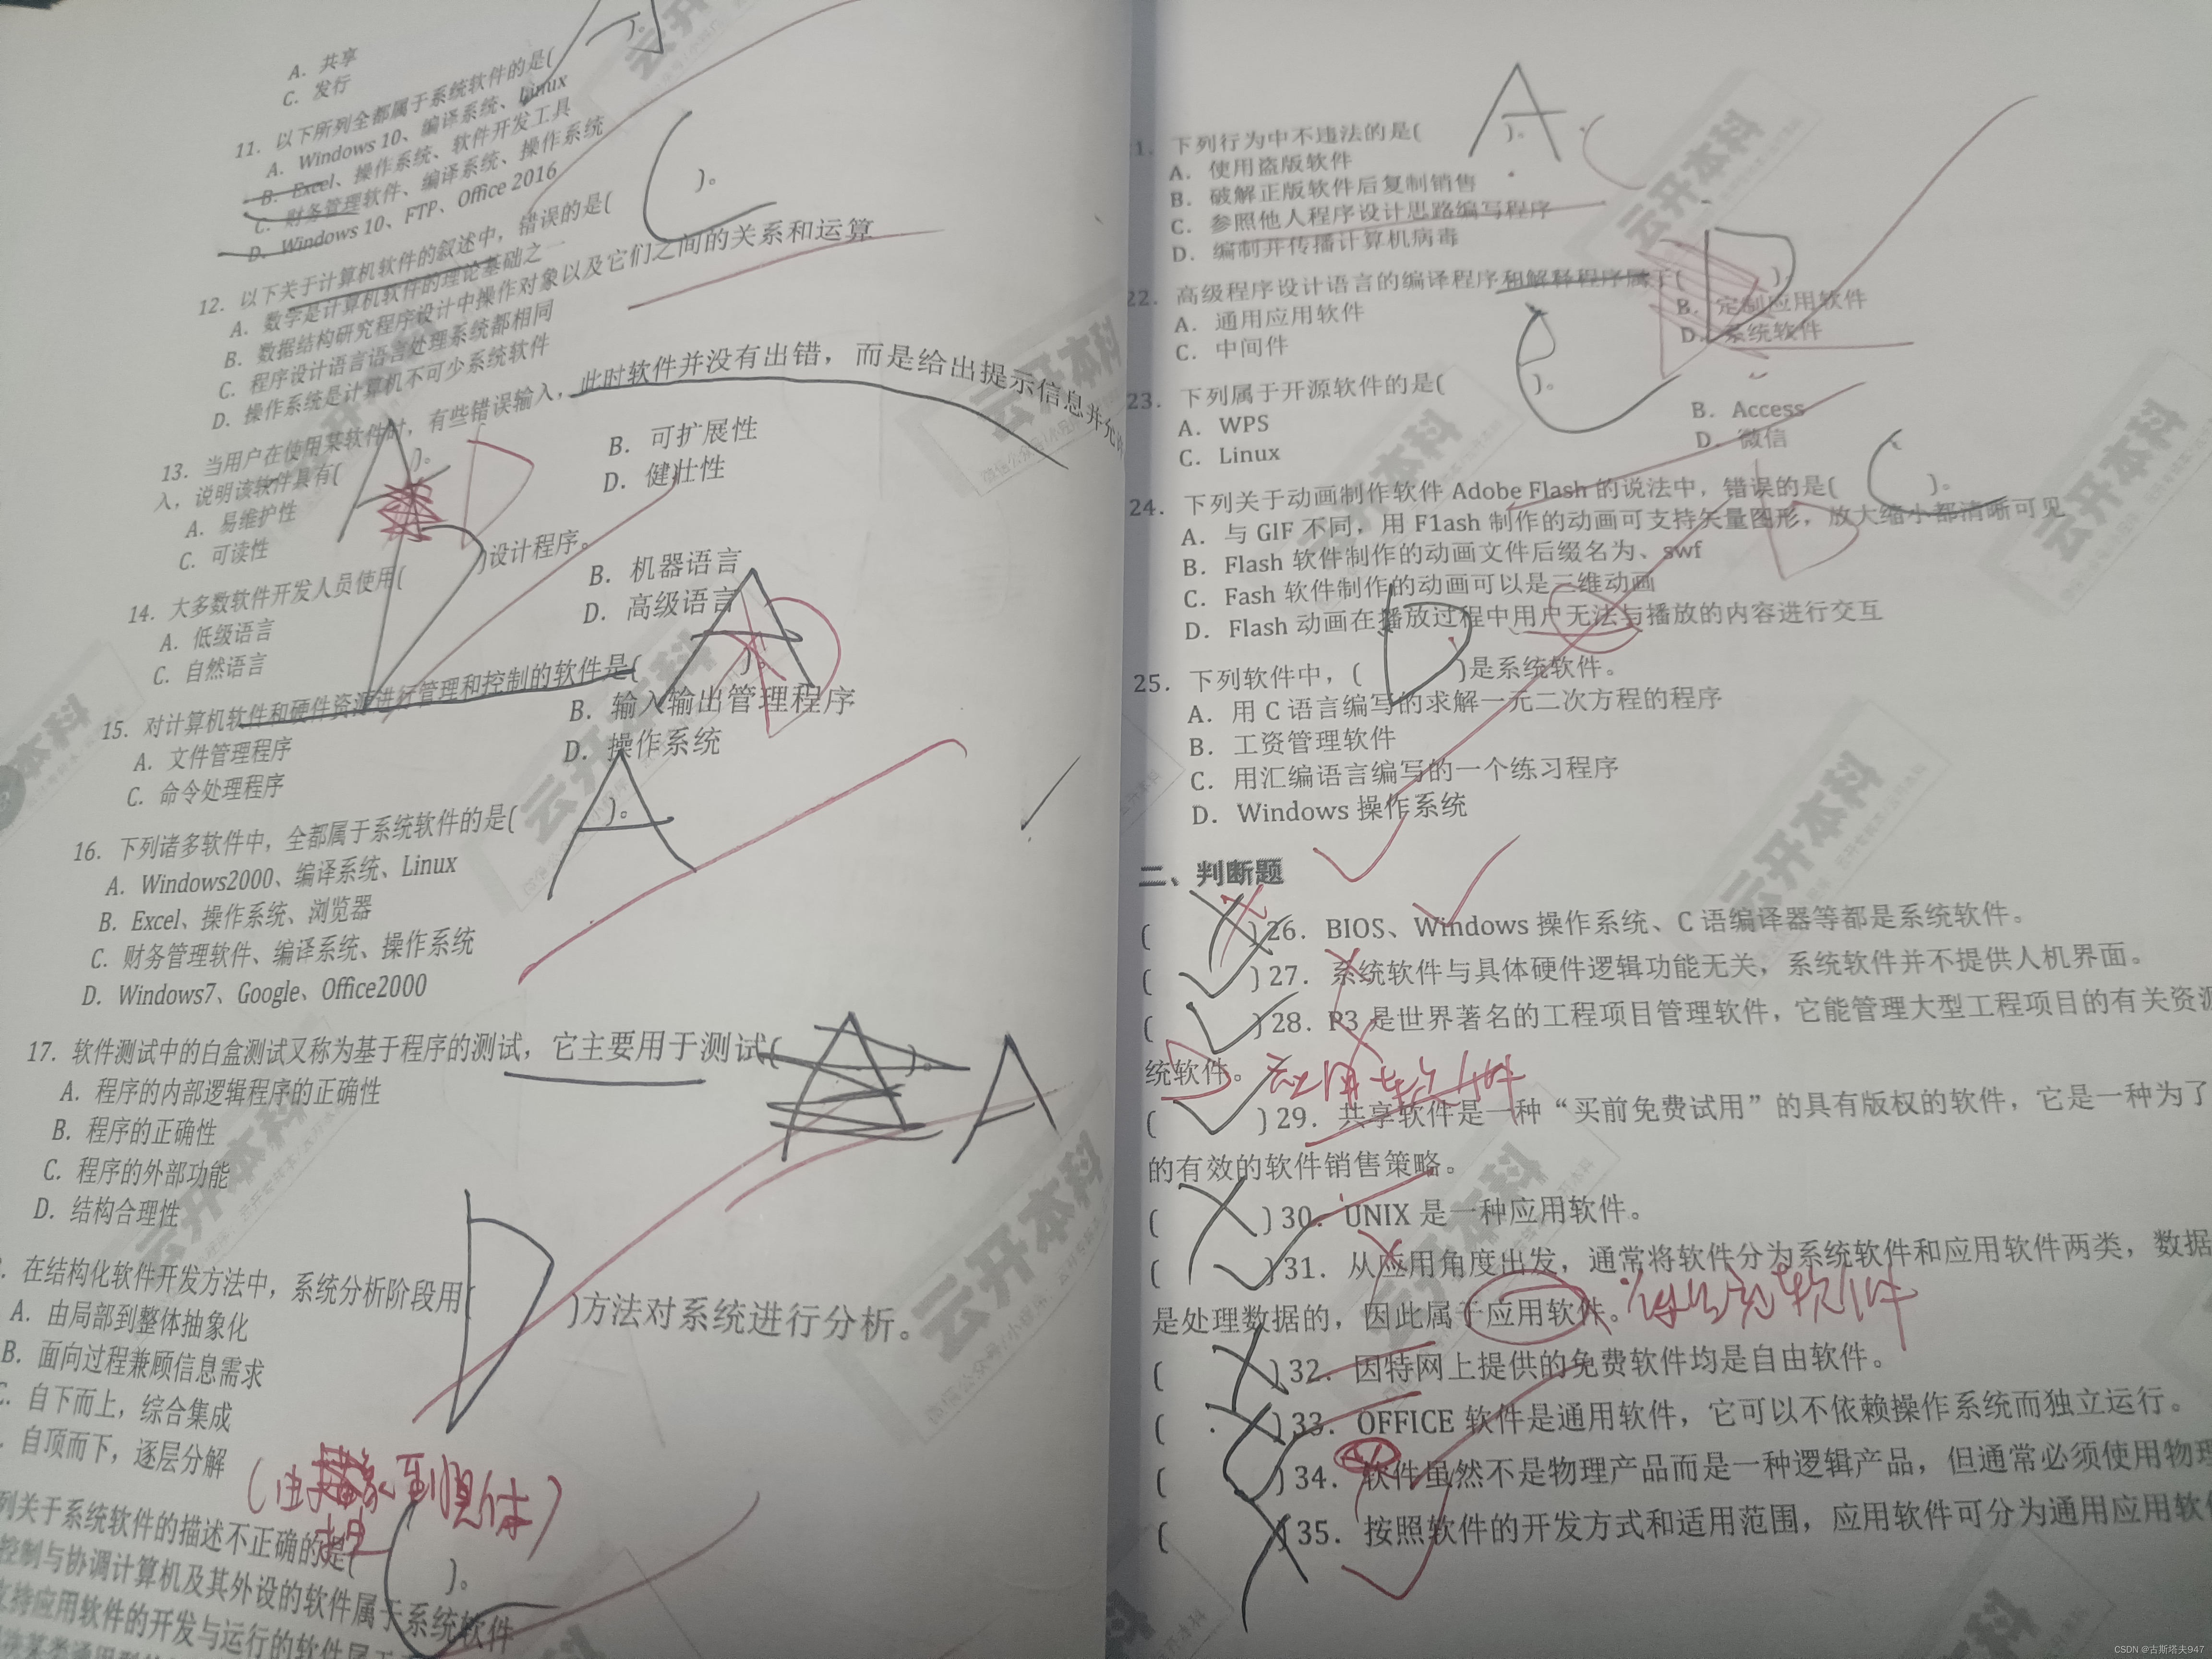 A. 共享
C. 发行
11. 以下所列全都属于系统软件的是(
A. Windows 10、编译系统、Linux
B. Excel、操作系统、软件开发工具
C. 财务管理软件、编译系统、操作系统
D. Windows 10、FTP、Office 2016
12. 以下关于计算机软件的叙述中，错误的是( C )。
A. 数学是计算机软件的理论基础之一
B. 数据结构研究程序设计中操作对象以及它们之间的关系和运算
C. 程序设计语言语言处理系统都相同
D. 操作系统是计算机不可少系统软件
13. 当用户在使用某软件时，有些错误输入，此时软件并没有出错，而是给出提示信息并允许
入，说明该软件具有( A )。 D
A. 易维护性
B. 可扩展性
C. 可读性
D. 健壮性
14. 大多数软件开发人员使用( D )设计程序。
A. 低级语言
B. 机器语言
C. 自然语言
D. 高级语言
15. 对计算机软件和硬件资源进行管理和控制的软件是( A )。 D
A. 文件管理程序
B. 输入输出管理程序
C. 命令处理程序
D. 操作系统
16. 下列诸多软件中，全都属于系统软件的是( A )。
A. Windows2000、编译系统、Linux
B. Excel、操作系统、浏览器
C. 财务管理软件、编译系统、操作系统
D. Windows7、Google、Office2000
17. 软件测试中的白盒测试又称为基于程序的测试，它主要用于测试( A )。 A
A. 程序的内部逻辑程序的正确性
B. 程序的正确性
C. 程序的外部功能
D. 结构合理性
. 在结构化软件开发方法中，系统分析阶段用( D )方法对系统进行分析。
A. 由局部到整体抽象化
B. 面向过程兼顾信息需求
C. 自下而上，综合集成
. 自顶而下，逐层分解
(由抽象到具体)
列关于系统软件的描述不正确的是( C )。
控制与协调计算机及其外设的软件属于系统软件
支持应用软件的开发与运行的软件属于
1. 下列行为中不违法的是( A )。 C
A. 使用盗版软件
B. 破解正版软件后复制销售
C. 参照他人程序设计思路编写程序
D. 编制并传播计算机病毒
22. 高级程序设计语言的编译程序和解释程序属于( D )。
A. 通用应用软件
B. 定制应用软件
C. 中间件
D. 系统软件
23. 下列属于开源软件的是( C )。
A. WPS
B. Access
C. Linux
D. 微信
24. 下列关于动画制作软件 Adobe Flash 的说法中，错误的是( C )。 D
A. 与 GIF 不同，用 F1ash 制作的动画可支持矢量图形，放大缩小都清晰可见
B. Flash 软件制作的动画文件后缀名为、swf
C. Fash 软件制作的动画可以是三维动画
D. Flash 动画在播放过程中用户无法与播放的内容进行交互
25. 下列软件中，( D )是系统软件。
A. 用 C 语言编写的求解一元二次方程的程序
B. 工资管理软件
C. 用汇编语言编写的一个练习程序
D. Windows 操作系统
二、判断题
( )26. BIOS、Windows 操作系统、C 语编译器等都是系统软件。
( )27. 系统软件与具体硬件逻辑功能无关，系统软件并不提供人机界面。
( )28. P3 是世界著名的工程项目管理软件，它能管理大型工程项目的有关资源
统软件。 应用软件
( )29. 共享软件是一种“买前免费试用”的具有版权的软件，它是一种为了
的有效的软件销售策略。
( )30. UNIX 是一种应用软件。
( )31. 从应用角度出发，通常将软件分为系统软件和应用软件两类，数据
是处理数据的，因此属于应用软件。 系统软件
( )32. 因特网上提供的免费软件均是自由软件。
( )33. OFFICE 软件是通用软件，它可以不依赖操作系统而独立运行。
( )34. 软件虽然不是物理产品而是一种逻辑产品，但通常必须使用物理
( )35. 按照软件的开发方式和适用范围，应用软件可分为通用应用软件
云开本科
CSDN @古斯塔夫947